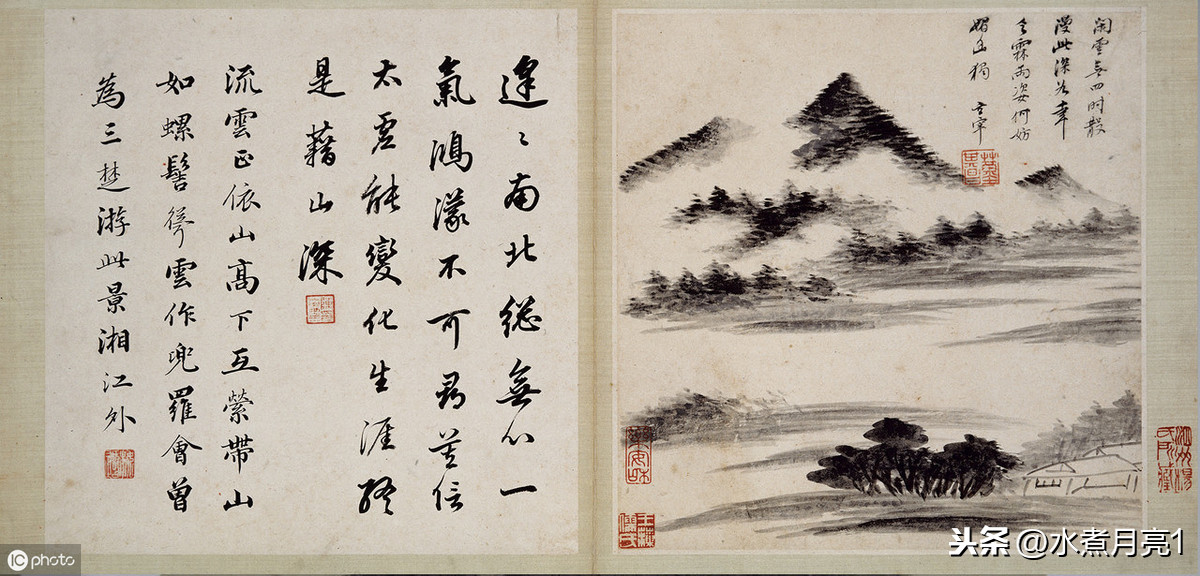 閒雲無四時散
漫此深谷幸
乏霖雨姿何妨
媚幽獨 玄宰
逢〻南北總無心一
氣鴻濛不可尋莫信
太虛能變化生涯終
是藉山深
流雲正依山高下互縈帶山
如螺髻雲作兜羅會曾
為三楚游此景湘江外
photo
头条 @水煮月亮1